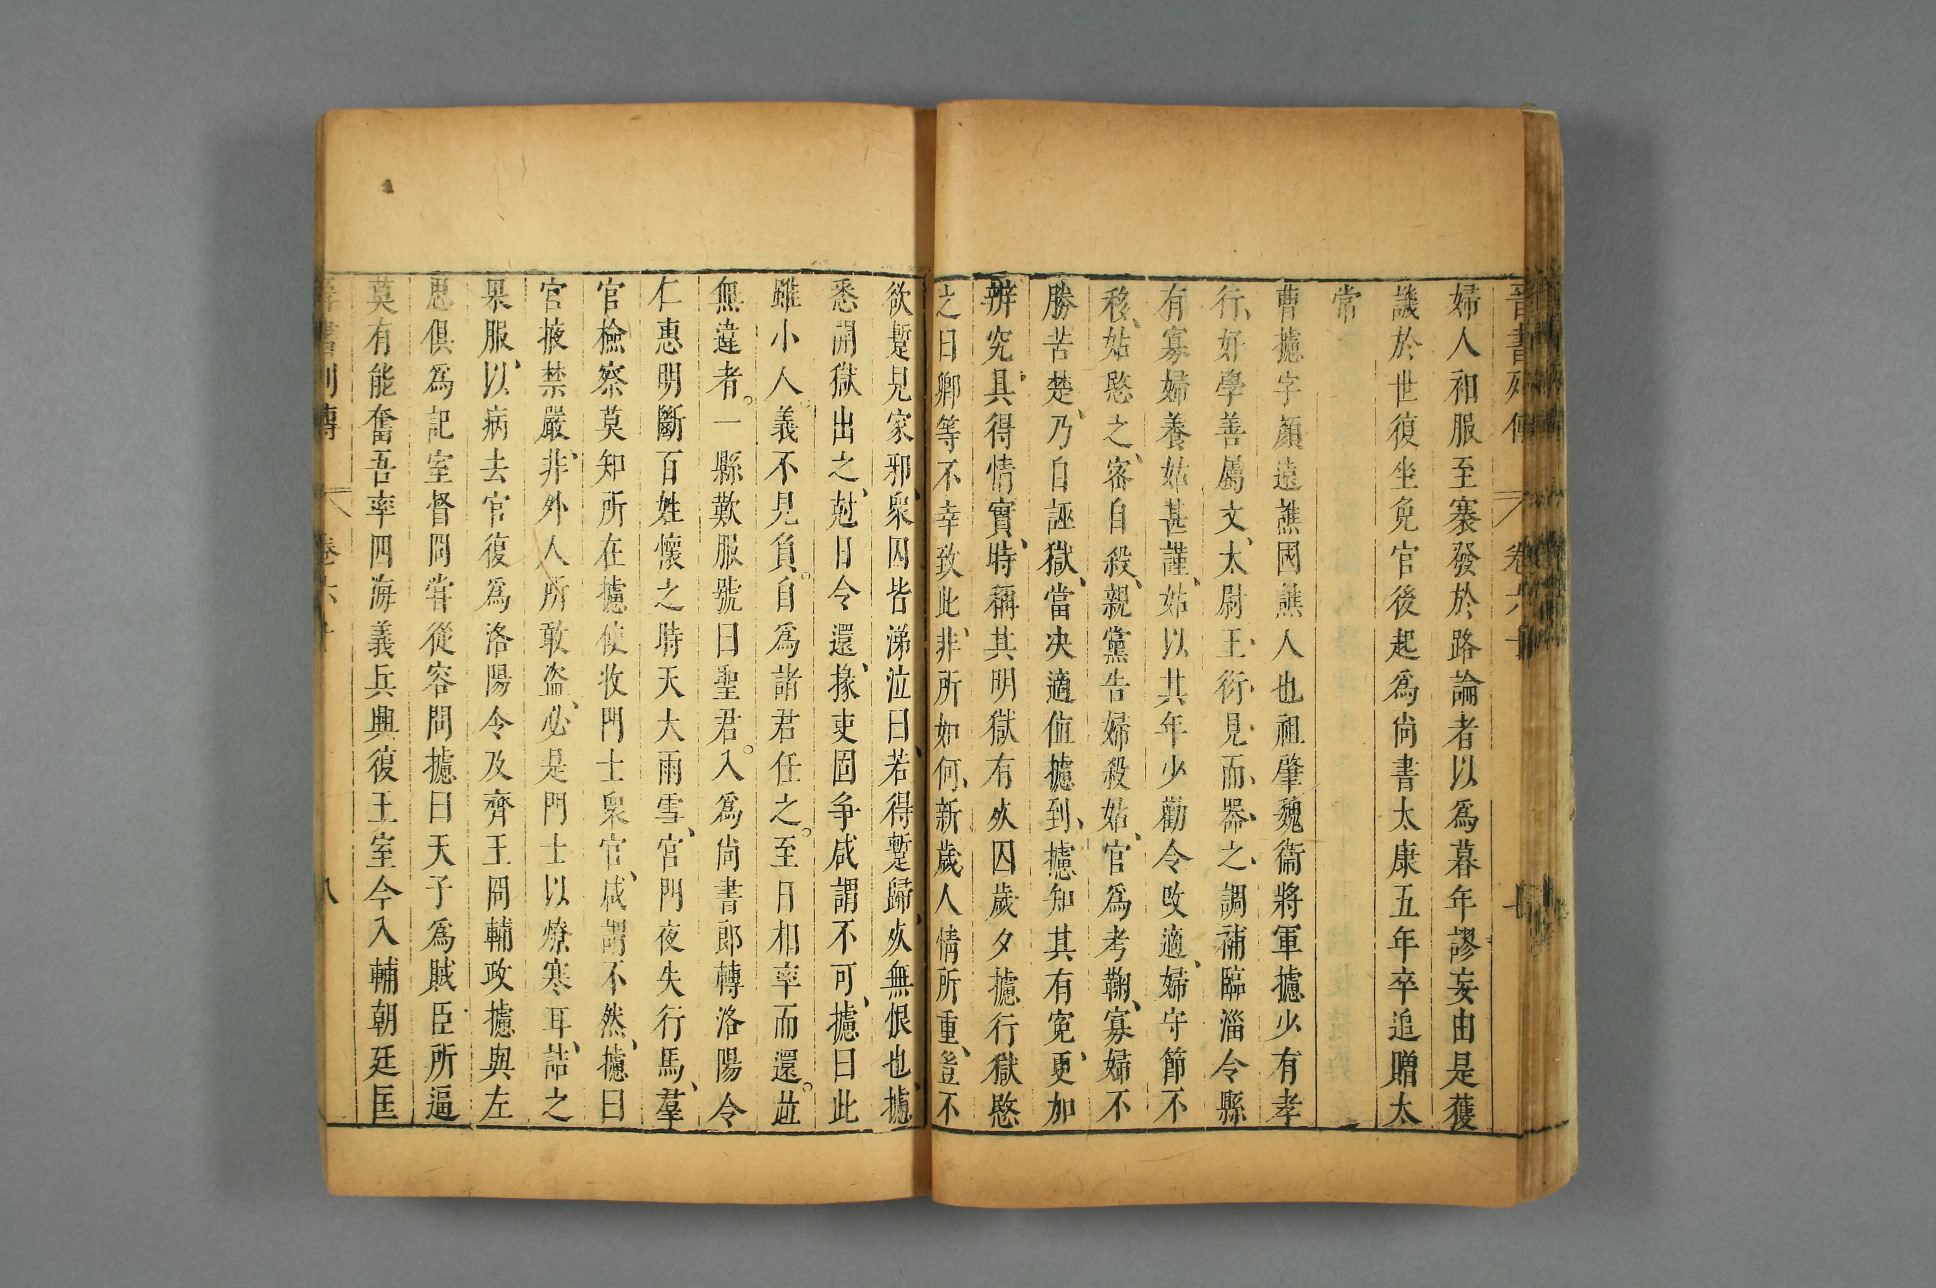 晉書列傳 卷六十 七
婦人袒服至寨發於路論者以爲暮年謬妄由是獲
譏於世復坐免官後起爲尚書太康五年卒追贈太
常
曹攄字顏遠譙國譙人也祖肇魏衞將軍攄少有孝
行、好學善屬文、太尉王衍見而器之、調補臨淄令縣
有寡婦養姑甚謹、姑以其年少勸令改適、婦守節不
移、姑愍之、密自殺、親黨告婦殺姑、官爲考鞫、寡婦不
勝苦楚、乃自誣獄、當决適值攄到、攄知其有寃、更加
辨究、具得情實、時稱其明獄有死囚歲夕攄行獄愍
之曰卿等不幸致此、非所如何、新歲人情所重、豈不
欲暫見家邪、衆囚皆涕泣曰、若得暫歸、死無恨也、攄
悉開獄出之、尅日令還、掾吏固争咸謂不可、攄曰此
雖小人。義不見負。自爲諸君任之。至日相率而還。並
無違者。一縣歎服號曰聖君。入爲尚書郎轉洛陽令
仁惠明斷百姓懷之時天大雨雪、宮門夜失行馬、羣
官檢察莫知所在攄使收門士衆官、咸謂不然、攄曰
宮掖禁嚴、非外人所敢盜、必是門士以燎寒耳、詰之
果服、以病去官復爲洛陽令及齊王冏輔政攄與左
思俱爲記室督冏嘗從容問攄曰天子爲賊臣所逼
莫有能奮吾率四海義兵興復王室今入輔朝廷匡
晉書列傳 卷六十 八